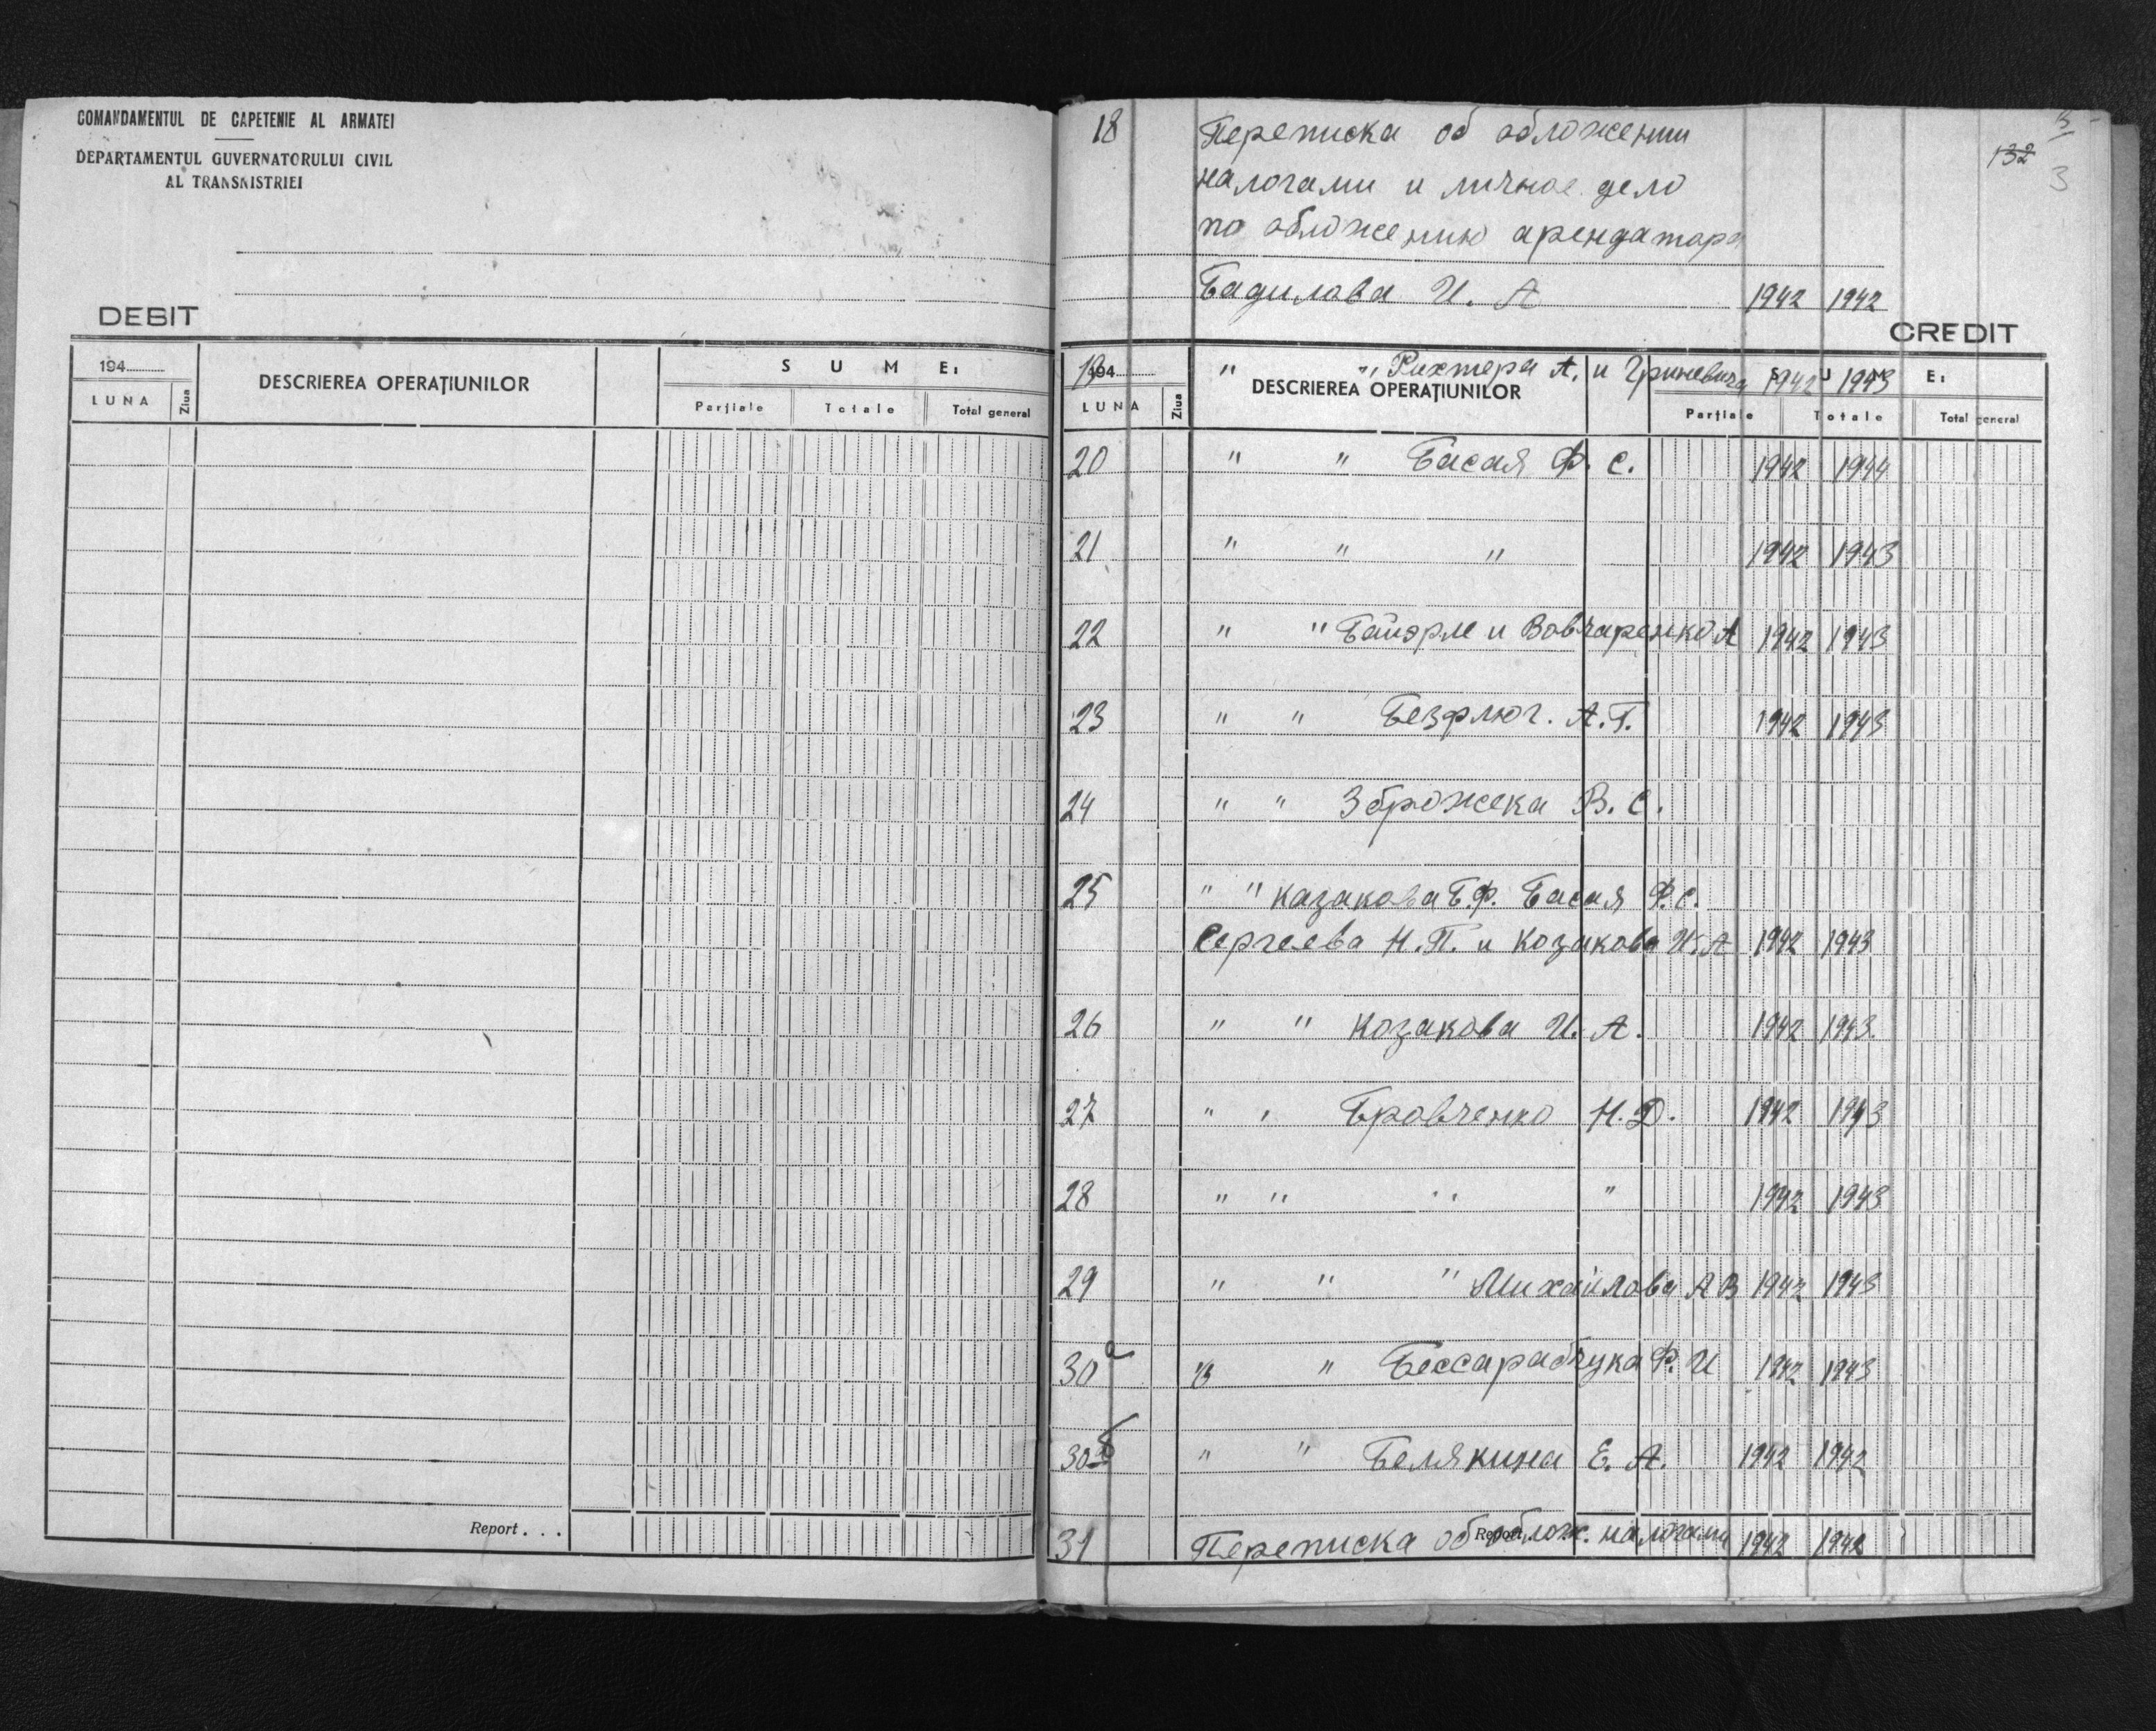 COMANDAMENTUL DE CAPETENIE AL ARMATEI
DEPARTAMENTUL GUVERNATORULUI CIVIL
AL TRANSNISTRIEI
DEBIT
194
LUNA
Ziua
DESCRIEREA OPERAȚIUNILOR
SUME:
Parțiale
Totale
Total general
Report . . .
132
3
18 Переписка об обложении
налогами и личное дело
по обложению арендатора
Бадилова И. А 1942 1942
CREDIT
194
LUNA
Ziua
DESCRIEREA OPERAȚIUNILOR
SUME:
Parțiale
Totale
Total general
19 " " Рихтера А. и Гриневича 1942 1943
20 " " Басая Ф. С. 1942 1944
21 " " " 1942 1943
22 " " и Вовчаренко А 1942 1943
23 " " А.Г. 1942 1943
24 " " Зброжека В. С.
25 " " Казакова Б.Ф. Басая Ф.С.
Сергеева Н.П. и Козакова И.А 1942 1943
26 " " Козакова И. А. 1942 1943
27 " " Бровченко Н.Д. 1942 1943
28 " " " " 1942 1943
29 " " " Михайлова А В 1942 1943
30а " " Бессарабчука Ф. И 1942 1943
30б " " Белякина Е. А. 1942 1942
31 Переписка об облож. налогами 1942 1942
Report